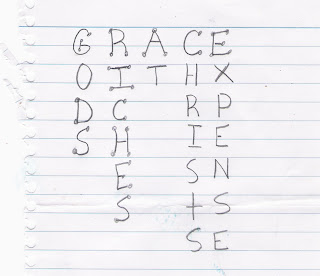 GRACE
OITHX
DC RP
SH IE
E SN
S TS
SE